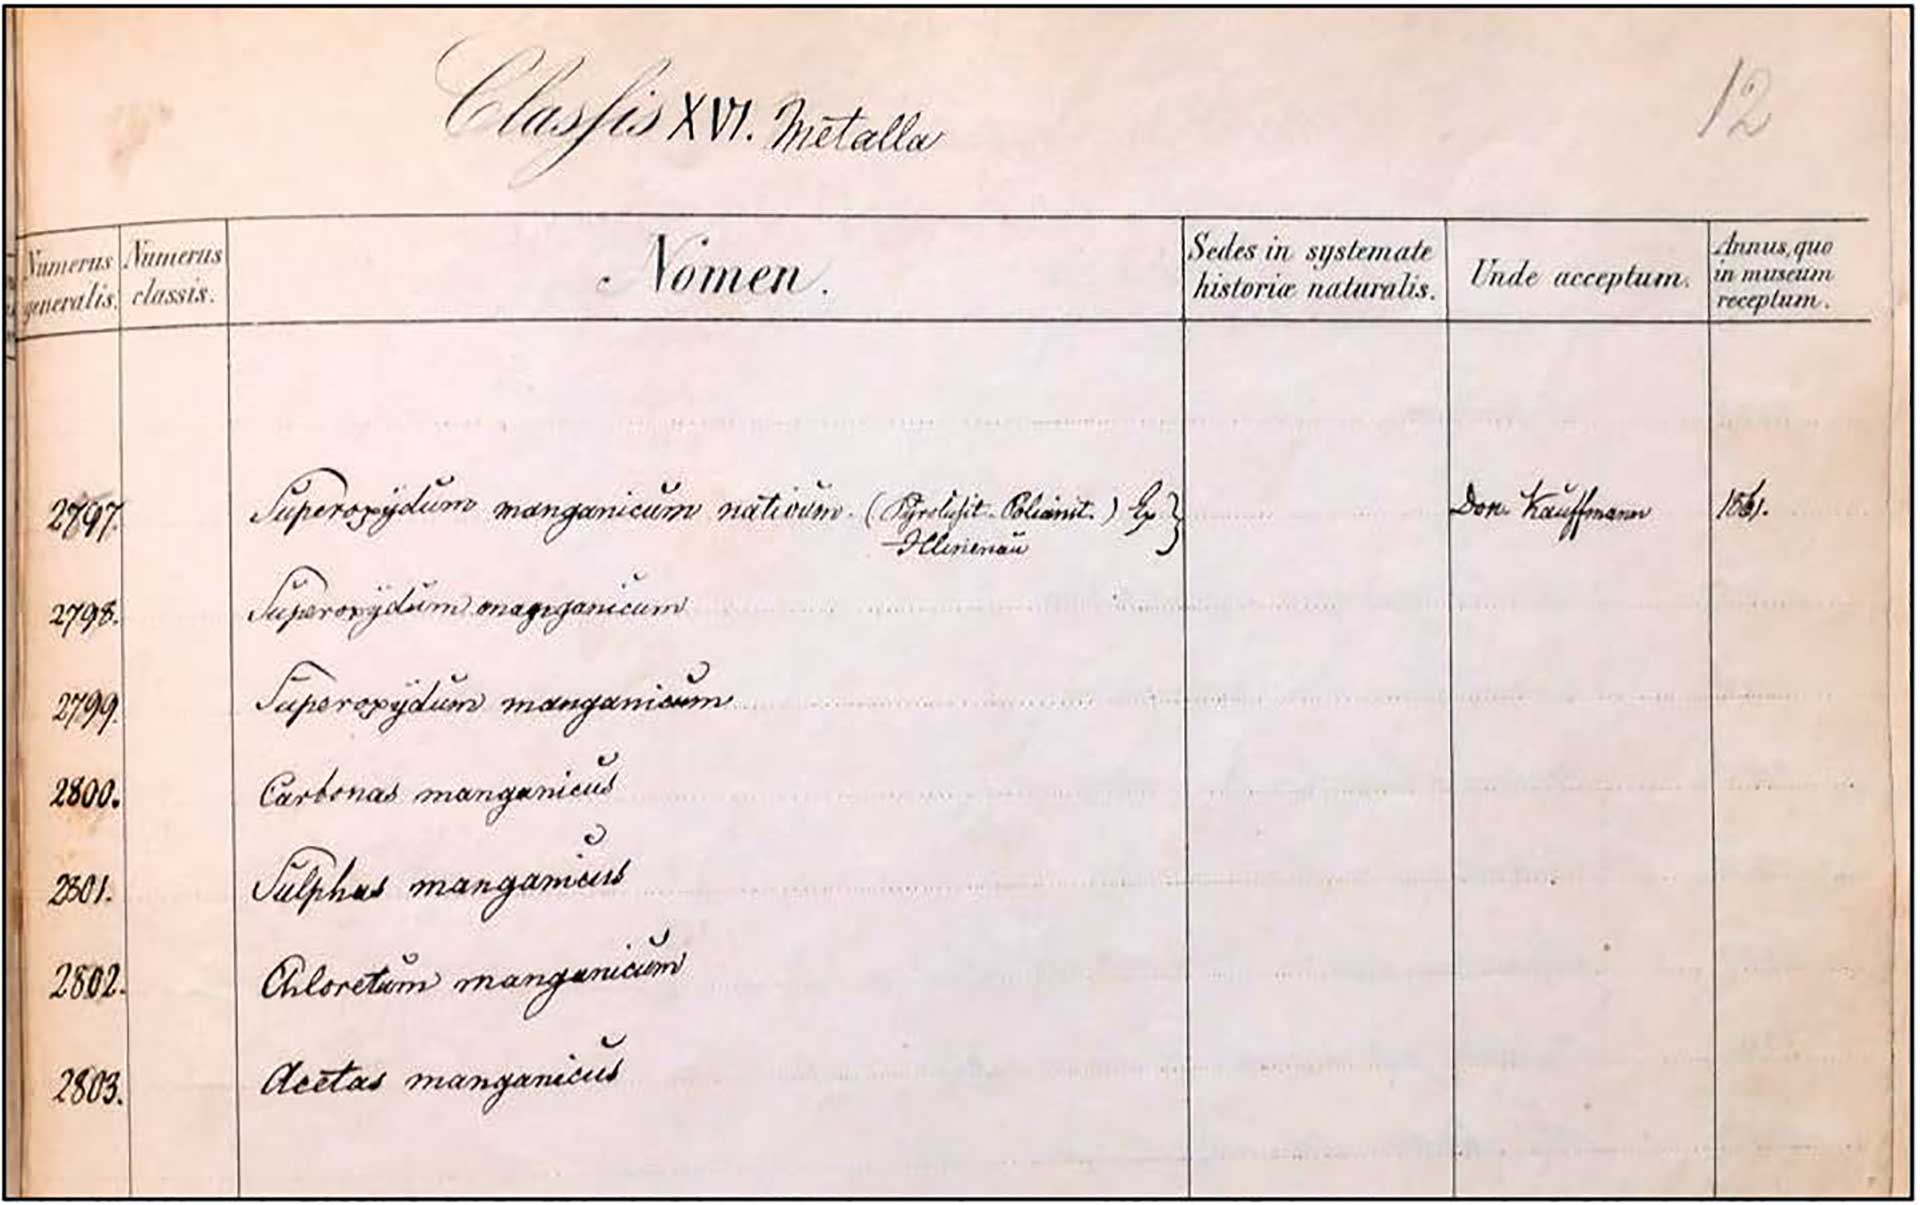 Classis XVI. Metalla
12
Numerus generalis.
Numerus classis.
Nomen.
Sedes in systemate
historiæ naturalis.
Unde acceptum.
Annus, quo
in museum
receptum.
2797. Superoxÿdum manganicum nativum. (Pyrolusit-Polianit.) Ex } Don. Kauffmann 1861.
2798. Superoxÿdum manganicum
2799. Superoxÿdum manganicum
2800. Carbonas manganicus
2801. Sulphas manganicus
2802. Chloretum manganicum
2803. Acetas manganicus